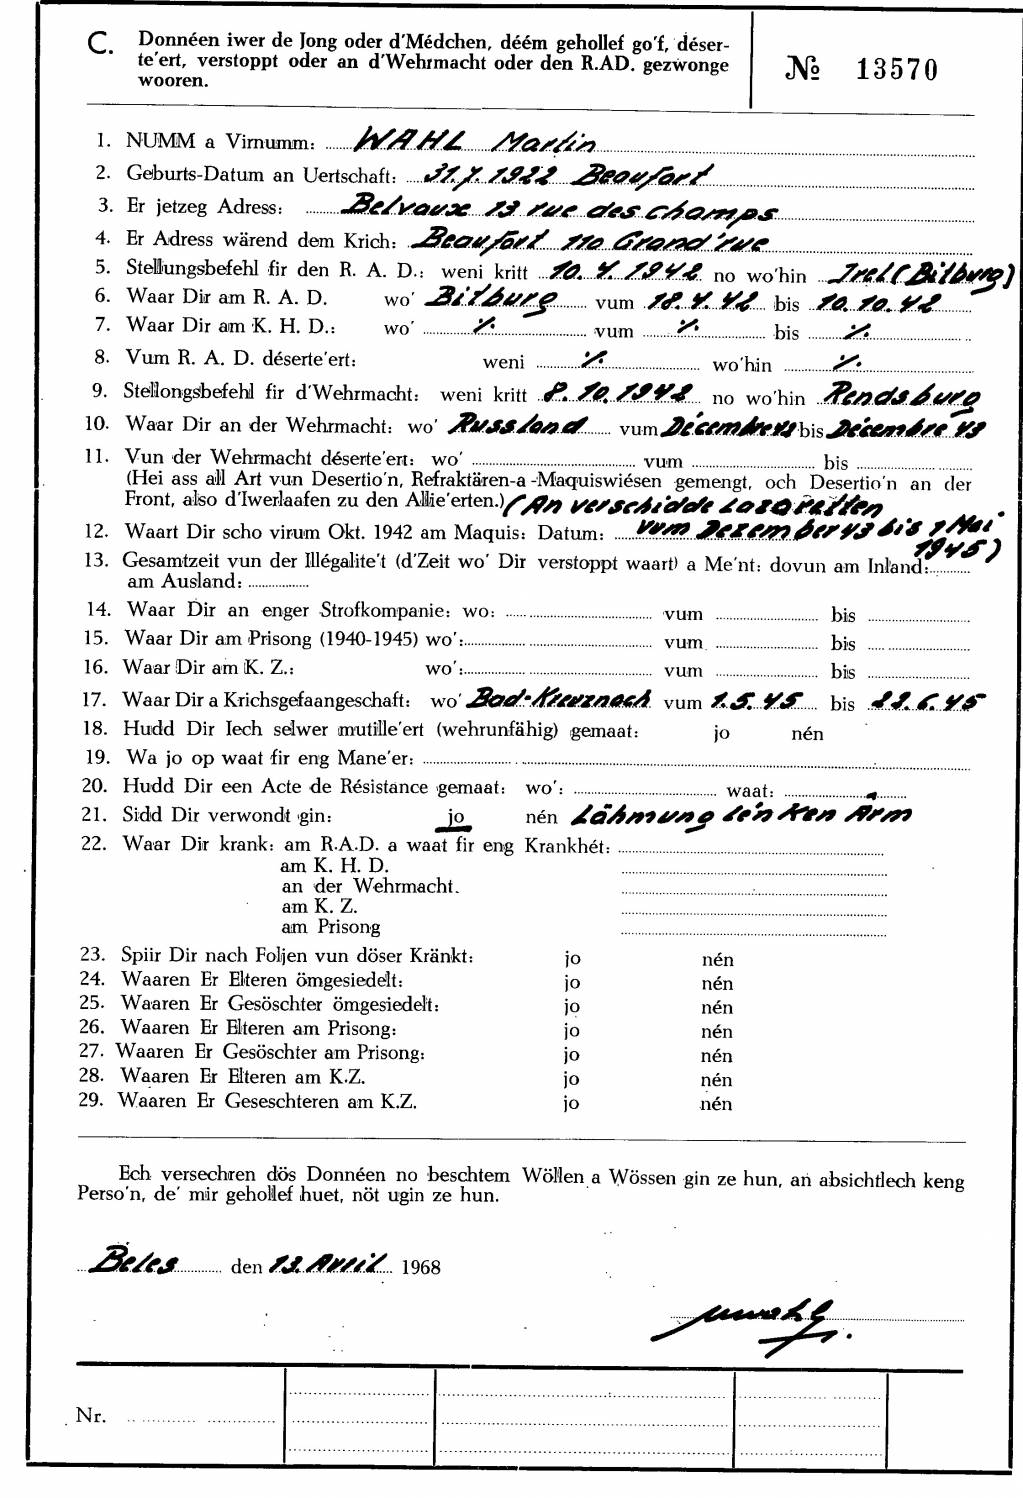 C. Donnéen iwer de Jong oder d'Médchen, déém gehollef go'f, déser-
te'ert, verstoppt oder an d'Wehrmacht oder den R.AD. gezwonge
wooren.
№ 13570
1. NUMM a Virnumm: WAHL Martin
2. Geburts-Datum an Uertschaft: 31.7.1922 Beaufort
3. Er jetzeg Adress: Belvaux 13 rue des champs
4. Er Adress wärend dem Krich: Beaufort 110 Grand'rue
5. Stellungsbefehl fir den R. A. D.: weni kritt 10.4.1942 no wo'hin Irel (Bitburg)
6. Waar Dir am R. A. D. wo' Bitburg vum 18.4.42 bis 10.10.42
7. Waar Dir am K. H. D.: wo' ·/. vum ·/. bis ·/.
8. Vum R. A. D. déserte'ert: weni ·/. wo'hin ·/.
9. Stellongsbefehl fir d'Wehrmacht: weni kritt 8.10.1942 no wo'hin Rendsburg
10. Waar Dir an der Wehrmacht: wo' Russland vum Décembre bis Décembre 43
11. Vun der Wehrmacht déserte'ert: wo' vum bis
(Hei ass all Art vun Desertio'n, Refraktären-a-Maquiswiésen gemengt, och Desertio'n an der
Front, also d'Iwerlaafen zu den Allie'erten.) (An verschidde Lazaretten
12. Waart Dir scho virum Okt. 1942 am Maquis: Datum: vum Dezember 43 bis 1 Mai
1945)
13. Gesamtzeit vun der Illégalite't (d'Zeit wo' Dir verstoppt waart) a Me'nt: dovun am Inland:
am Ausland:
14. Waar Dir an enger Strofkompanie: wo: vum bis
15. Waar Dir am Prisong (1940-1945) wo': vum bis
16. Waar Dir am K. Z.: wo': vum bis
17. Waar Dir a Krichsgefaangeschaft: wo' Bad-Kreuznach vum 1.5.45 bis 22.6.45
18. Hudd Dir Iech selwer mutille'ert (wehrunfähig) gemaat: jo nén
19. Wa jo op waat fir eng Mane'er:
20. Hudd Dir een Acte de Résistance gemaat: wo': waat:
21. Sidd Dir verwondt gin: jo nén Lähmung lénken Arm
22. Waar Dir krank: am R.A.D. a waat fir eng Krankhét:
am K. H. D.
an der Wehrmacht.
am K. Z.
am Prisong
23. Spiir Dir nach Foljen vun döser Kränkt: jo nén
24. Waaren Er Elteren ömgesiedelt: jo nén
25. Waaren Er Gesöschter ömgesiedelt: jo nén
26. Waaren Er Elteren am Prisong: jo nén
27. Waaren Er Gesöschter am Prisong: jo nén
28. Waaren Er Elteren am K.Z. jo nén
29. Waaren Er Geseschteren am K.Z. jo nén
Ech versechren dös Donnéen no beschtem Wöllen a Wössen gin ze hun, an absichtlech keng
Perso'n, de' mir gehollef huet, nöt ugin ze hun.
Beles den 13. Avril 1968
MWahl
Nr.